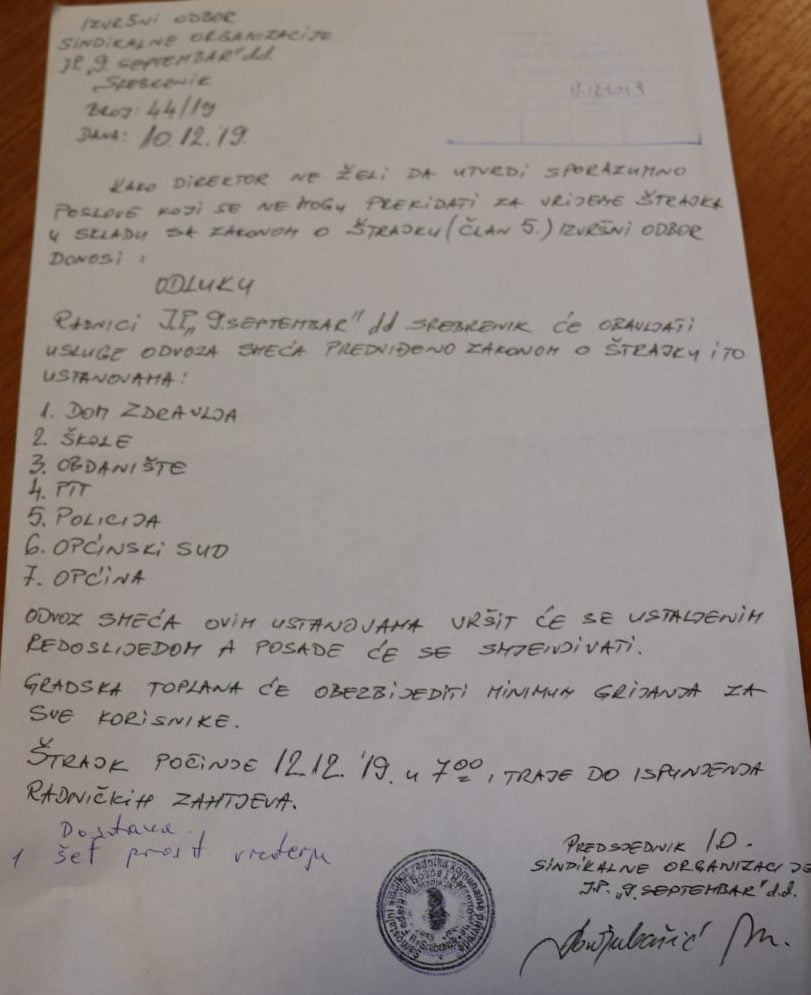 IZVRŠNI ODBOR
SINDIKALNE ORGANIZACIJE
JP „9. SEPTEMBAR" d.d.
SREBRENIK
BROJ: 44/19
DANA: 10.12.'19.
KAKO DIREKTOR NE ŽELI DA UTVRDI SPORAZUMNO
POSLOVE KOJI SE NE MOGU PREKIDATI ZA VRIJEME ŠTRAJKA
U SKLADU SA ZAKONOM O ŠTRAJKU (ČLAN 5.) IZVRŠNI ODBOR
DONOSI :
ODLUKU
RADNICI J.P. „9.SEPTEMBAR" dd SREBRENIK ĆE OBAVLJATI
USLUGE ODVOZA SMEĆA PREDVIĐENO ZAKONOM O ŠTRAJKU I TO
USTANOVAMA:
1. DOM ZDRAVLJA
2. ŠKOLE
3. OBDANIŠTE
4. PTT
5. POLICIJA
6. OPĆINSKI SUD
7. OPĆINA
ODVOZ SMEĆA OVIM USTANOVAMA VRŠIT ĆE SE USTALJENIM
REDOSLIJEDOM A POSADE ĆE SE SMJENJIVATI.
GRADSKA TOPLANA ĆE OBEZBIJEDITI MINIMUM GRIJANJA ZA
SVE KORISNIKE.
ŠTRAJK POČINJE 12.12.'19. u 7⁰⁰, TRAJE DO ISPUNJENJA
RADNIČKIH ZAHTJEVA.
Dostava
1 šef
PREDSJEDNIK I.O.
SINDIKALNE ORGANIZACIJE
J.P. „9. SEPTEMBAR" d.d.